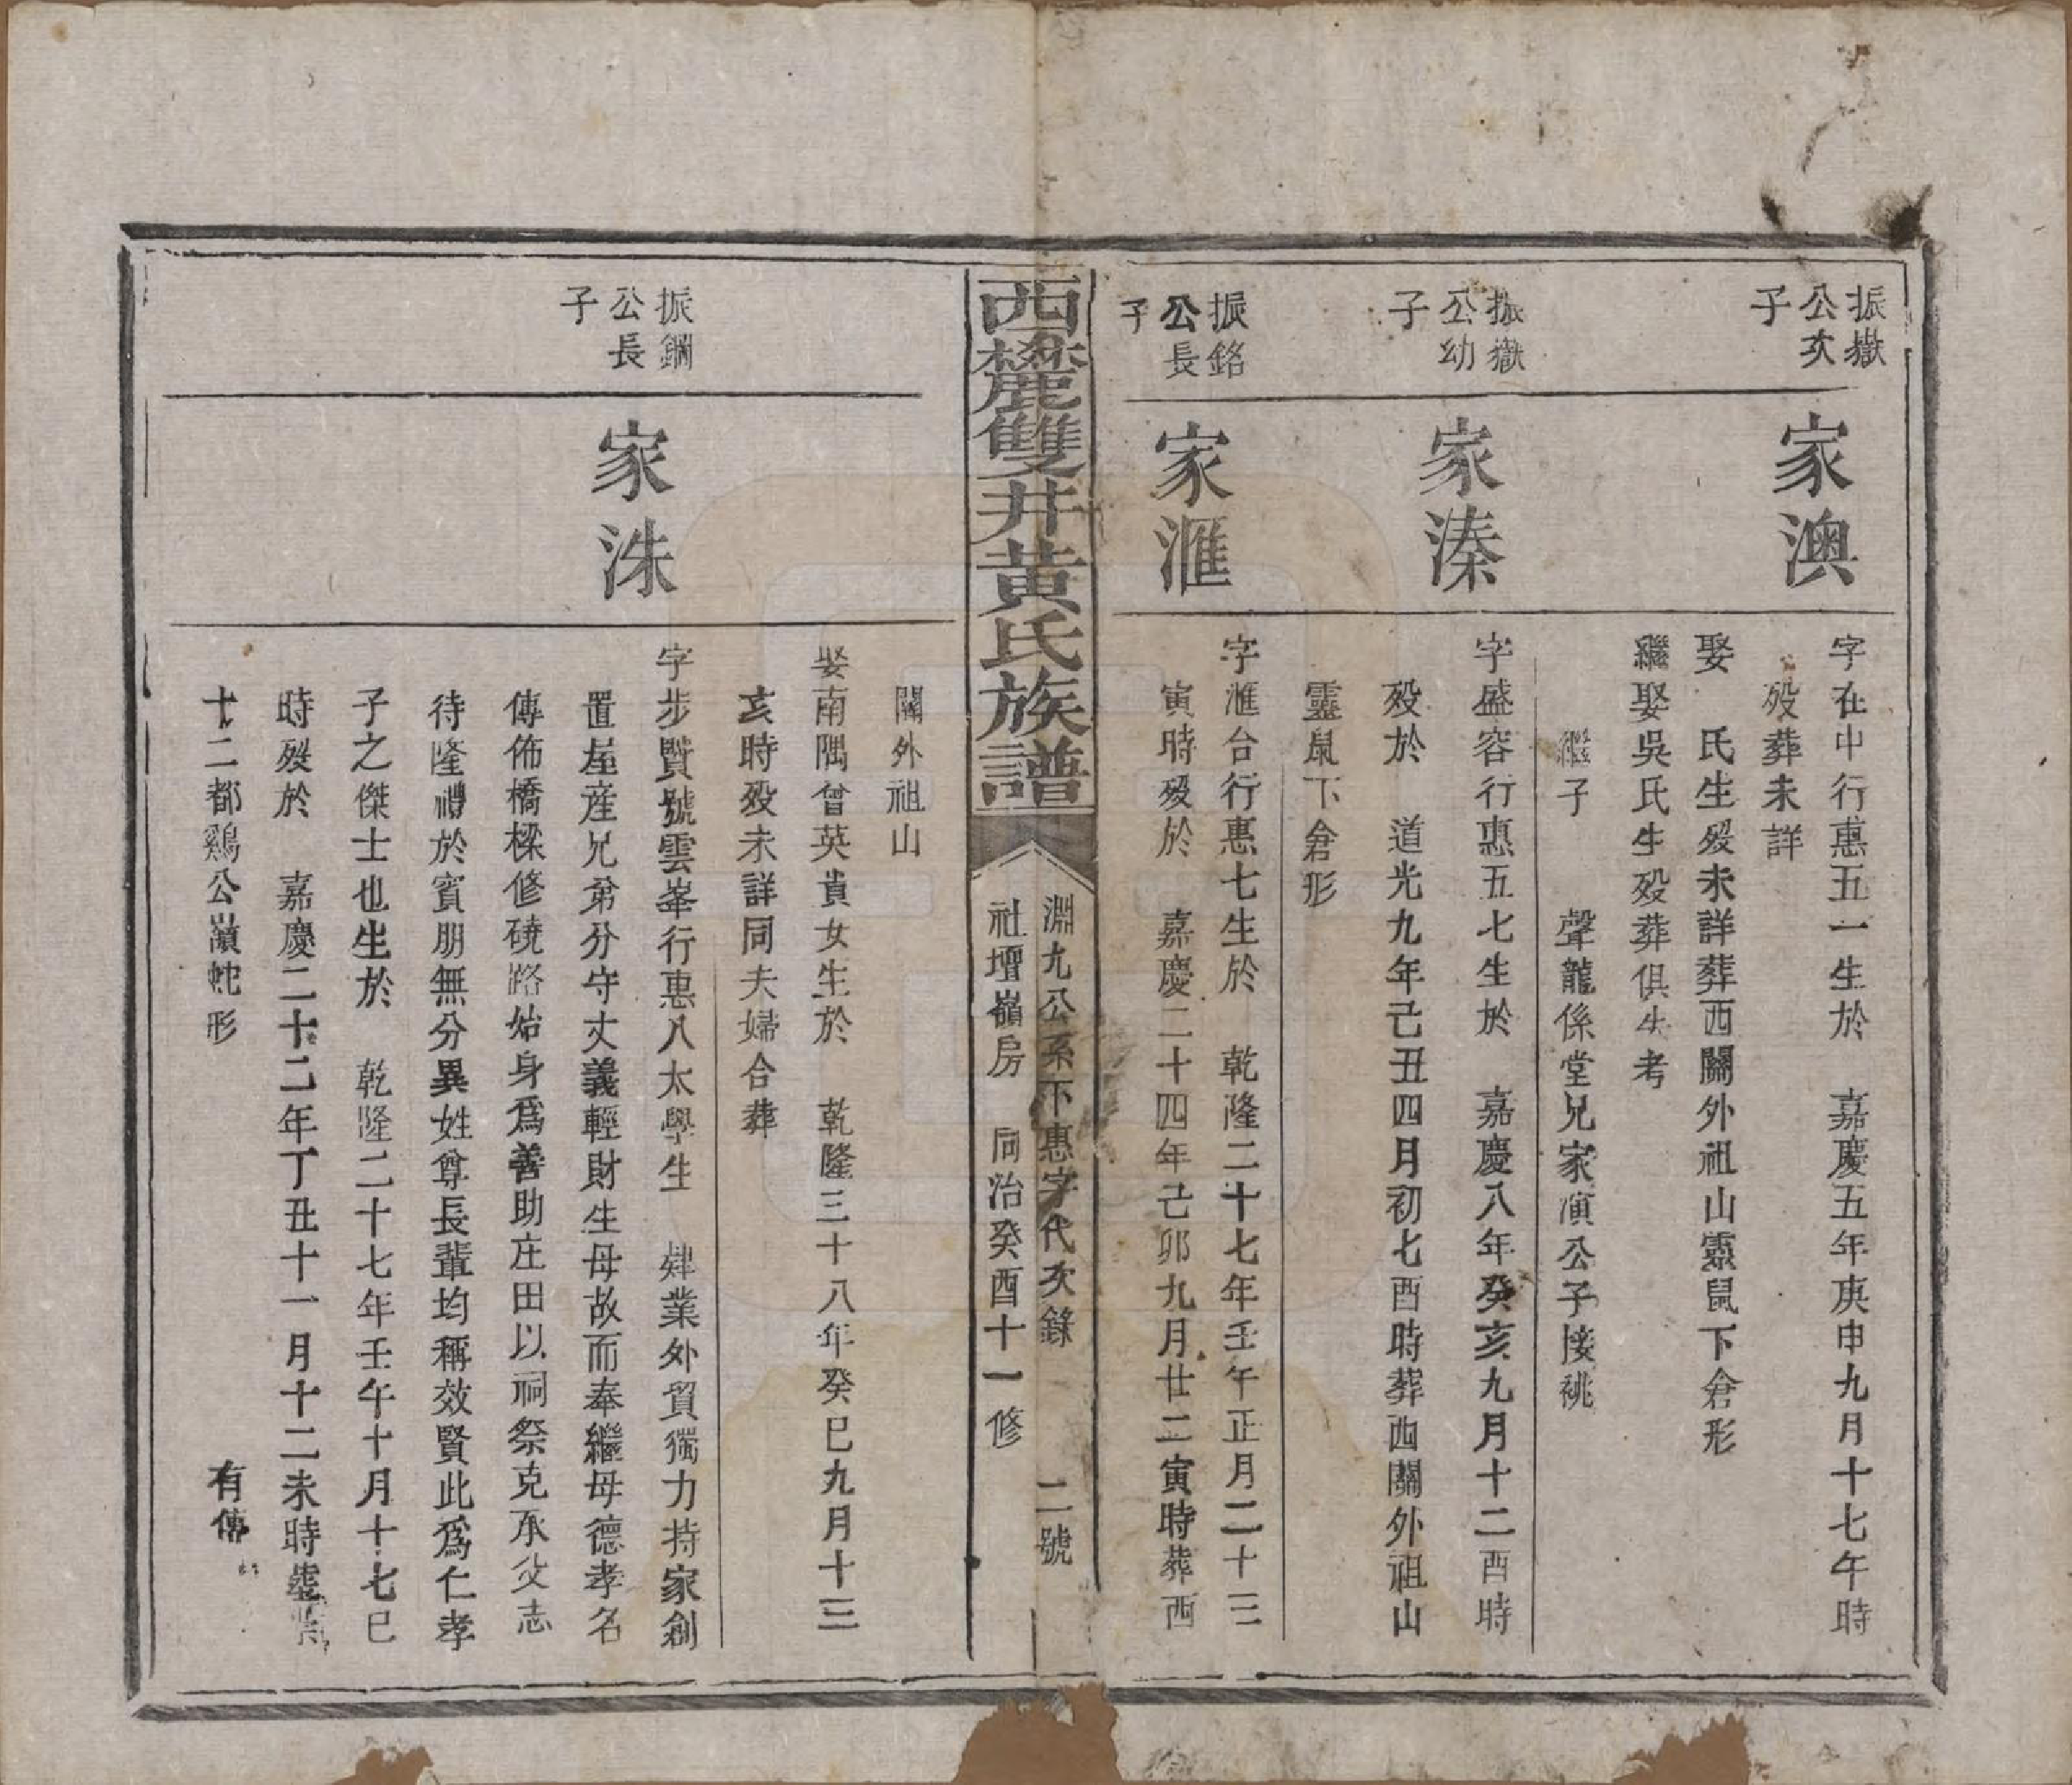 振嶽
公次
子
家澳
字在中行惠五一生於　嘉慶五年庚申九月十七午時
歿葬未詳
娶　氏生歿未詳葬西關外祖山靈鼠下倉形
繼娶吳氏生歿葬俱失考
繼子　聲龍係堂兄家演公子接祧
振嶽
公幼
子
家溱
字盛容行惠五七生於　嘉慶八年癸亥九月十二酉時
歿於　道光九年己丑四月初七酉時葬西關外祖山
靈鼠下倉形
振銘
公長
子
家滙
字滙台行惠七生於　乾隆二十七年壬午正月二十三
寅時歿於　嘉慶二十四年己卯九月廿二寅時葬西
西麓雙井黃氏族譜
淵九公系下惠字代次錄　二號
社壇嶺房　同治癸酉十一修
關外祖山
娶南隅曾英貴女生於　乾隆三十八年癸巳九月十三
亥時歿未詳同夫婦合葬
振鋼
公長
子
家洙
字步賢號雲峯行惠八太學生　肄業外貿獨力持家創
置屋産兄弟分守丈義輕財生母故而奉繼母德孝名
傳佈橋樑修磽路始身爲善助庄田以祠祭克承父志
待隆禮於賓朋無分異姓尊長輩均稱效賢此爲仁孝
子之傑士也生於　乾隆二十七年壬午十月十七巳
時歿於　嘉慶二十二年丁丑十一月十二未時塟
十二都鷄公嶺蛇形　有傳